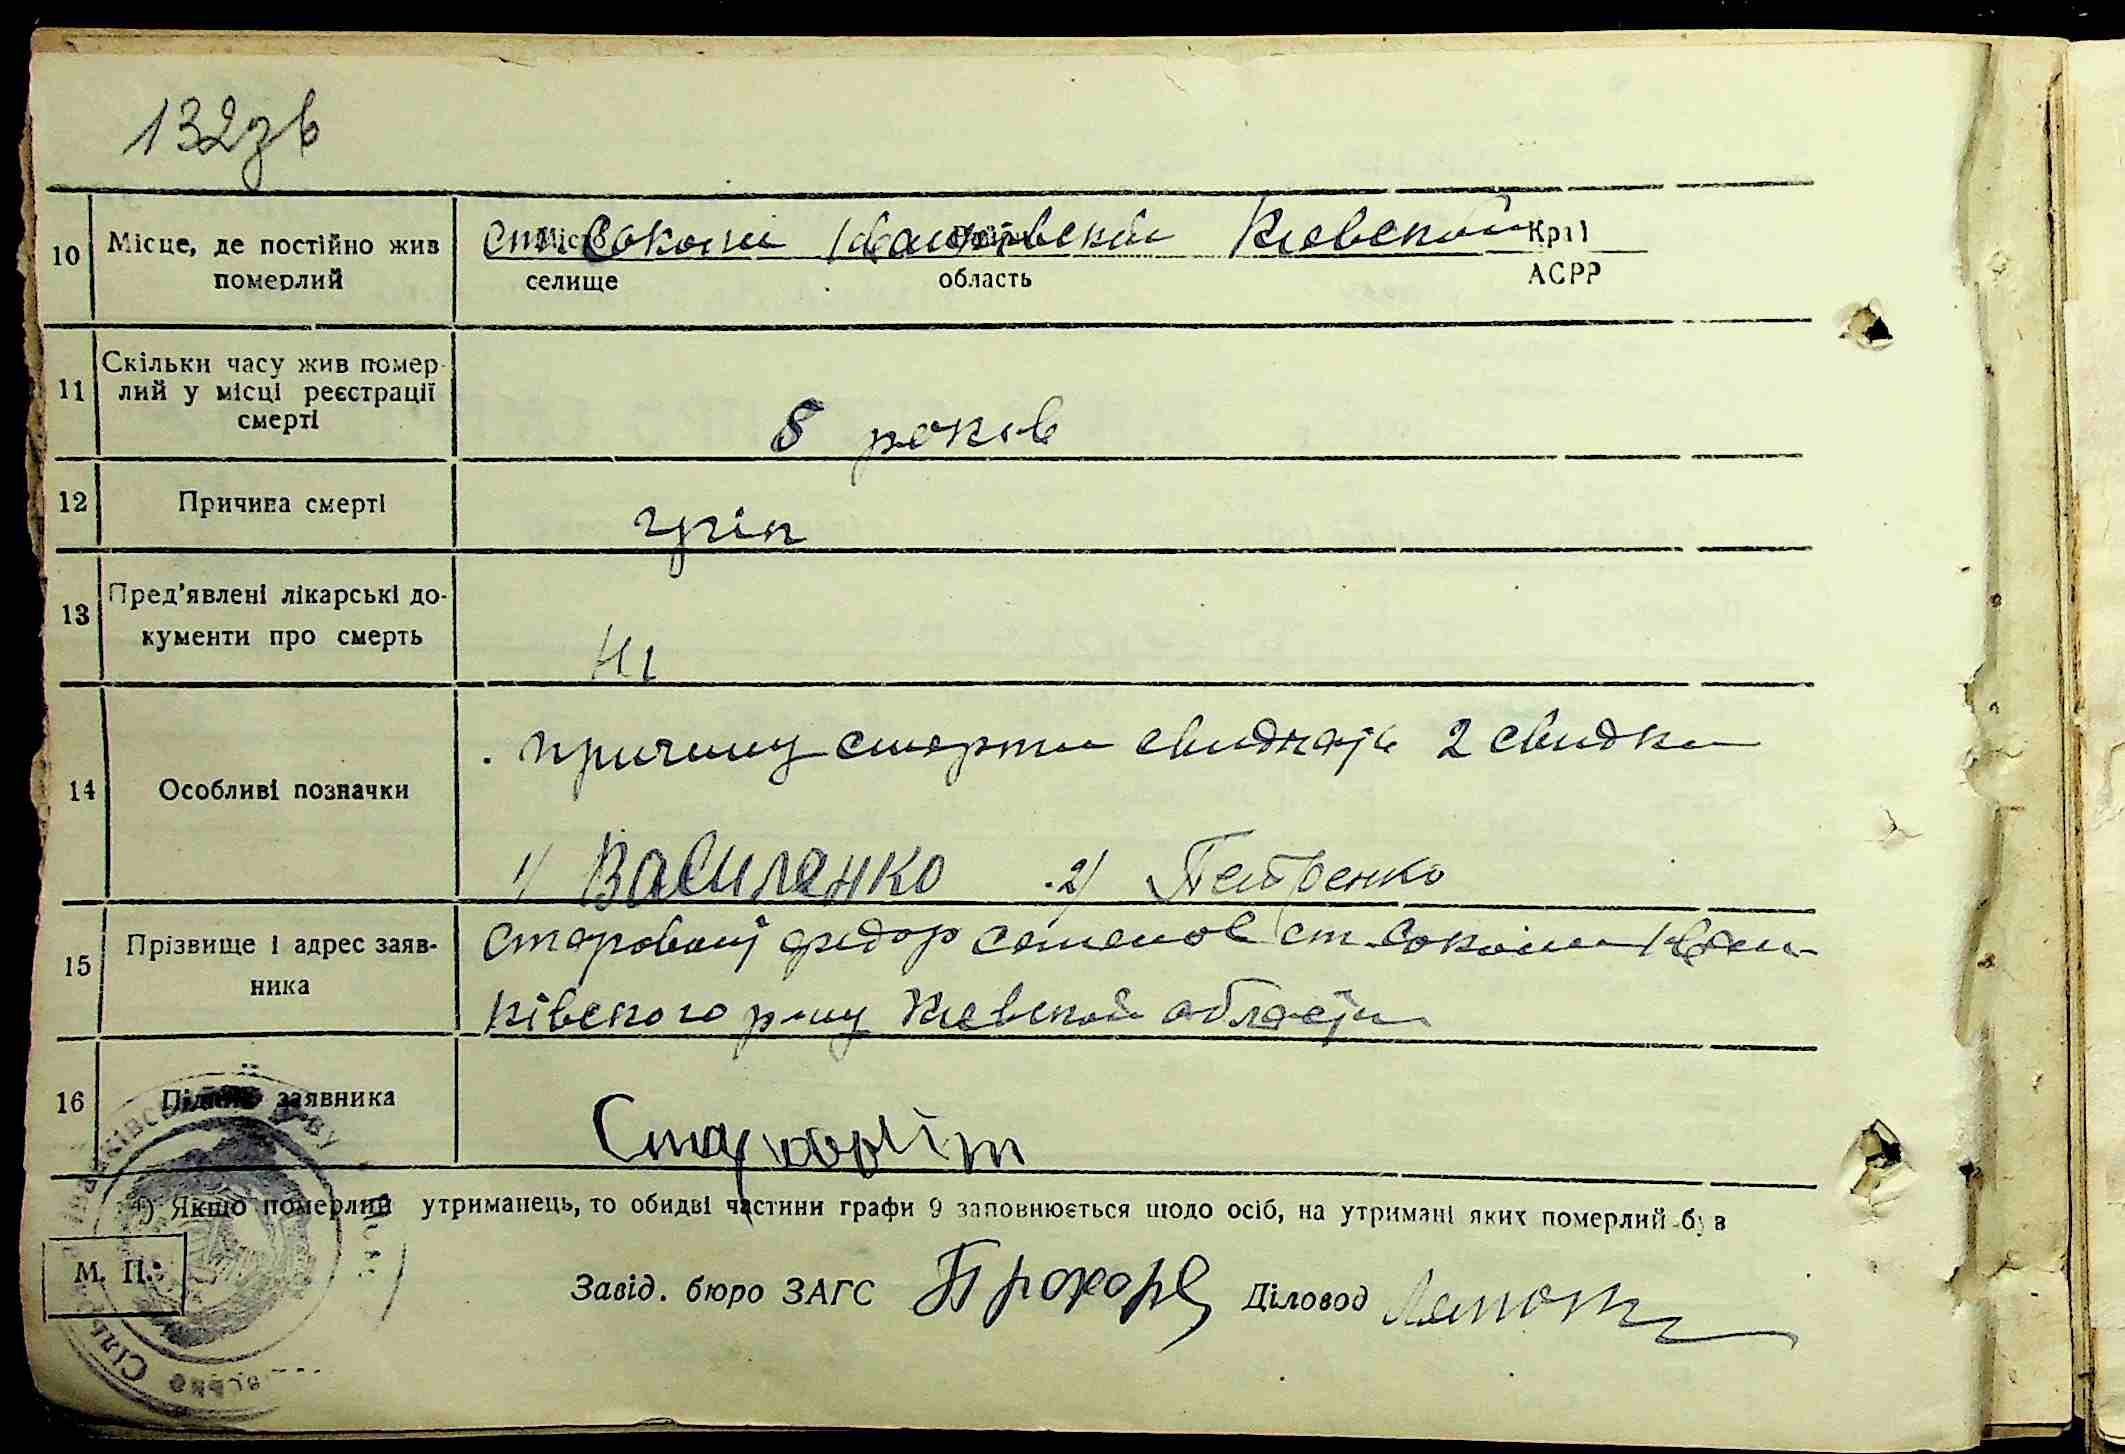 132зв
10 Місце, де постійно жив ст Сокочи Іванківской Киевской Край
померлий селище область АСРР
11 Скільки часу жив помер-
лий у місці реєстрації
смерті
8 років
12 Причина смерті
гріп
13 Пред'явлені лікарські до-
кументи про смерть
Ні
14 Особливі позначки
причину смерти свидкають 2 свидки
1) Василенко 2) Петренко
15 Прізвище і адрес заяв-
ника
федор семенов ст. Іван-
ківского р-ну Киевской области
16 Підпис заявника
*) Якщо померлий утриманець, то обидві частини графи 9 заповнюється щодо осіб, на утримані яких померлий був
М. П.
Завід. бюро ЗАГС Діловод